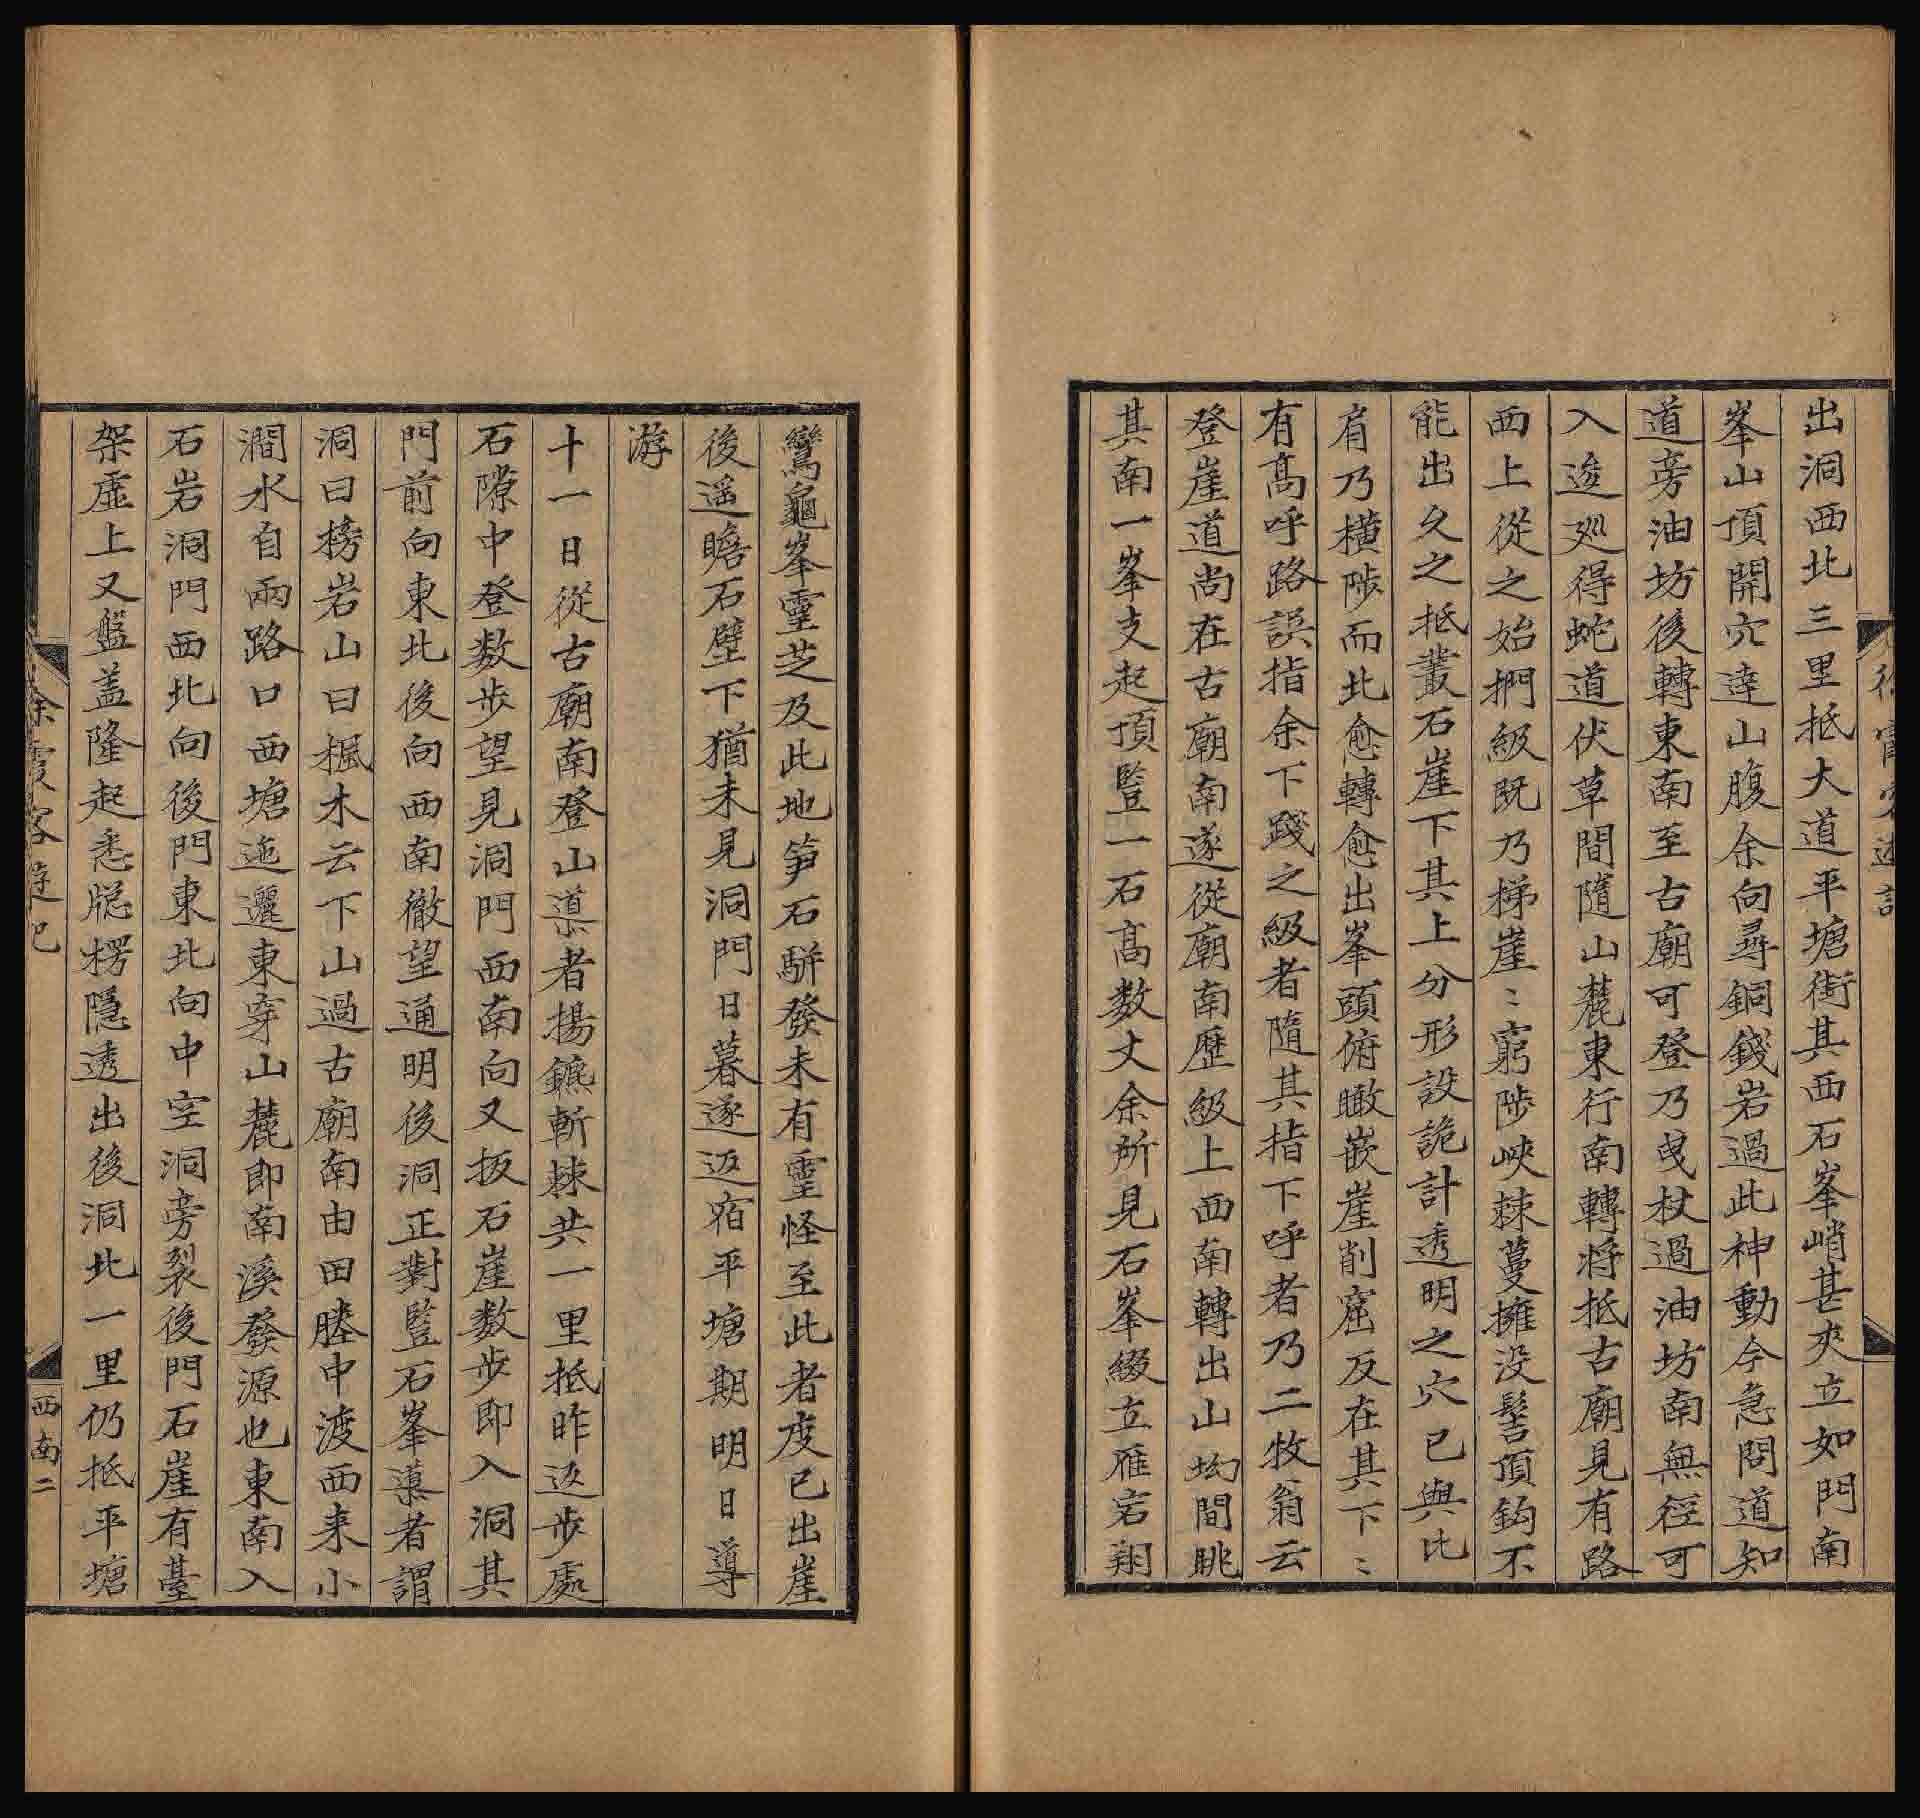 出洞西北三里抵大道平塘街其西石峯峭甚夾立如門南
峯山頂開穴達山腹余向尋銅錢岩過此神動今急問道知
道旁油坊後轉東南至古廟可登乃曳杖過油坊南無徑可
入逡巡得蛇道伏草間隨山麓東行南轉將抵古廟見有路
西上從之始捫級既乃梯崖〻窮陟峽棘蔓擁没髻頂鈎不
能出久之抵叢石崖下其上分形設詭計透明之穴已與比
肩乃橫陟而北愈轉愈出峯頭俯瞰嵌崖削窟反在其下〻
有高呼路誤指余下踐之級者隨其指下呼者乃二牧翁云
登崖道尚在古廟南遂從廟南歷級上西南轉出山坳間眺
其南一峯支起頂豎一石高数丈余所見石峯綴立雁宕翔
鸞龜峯靈芝及此地笋石駢發未有靈怪至此者度已出崖
後遥瞻石壁下猶未見洞門日暮遂返宿平塘期明日導
游
十一日從古廟南登山導者揚鑣斬棘共一里抵昨返步處
石隙中登数步望見洞門西南向又扳石崖数步即入洞其
門前向東北後向西南徹望通明後洞正對豎石峯導者謂
洞曰榜岩山曰楓木云下山過古廟南由田塍中渡西来小
澗水自兩路口西塘迤邐東穿山麓即南溪發源也東南入
石岩洞門西北向後門東北向中空洞旁裂後門石崖有臺
架虛上又盤盖隆起悉牕楞隱透出後洞北一里仍抵平塘
徐霞客遊記
西南二